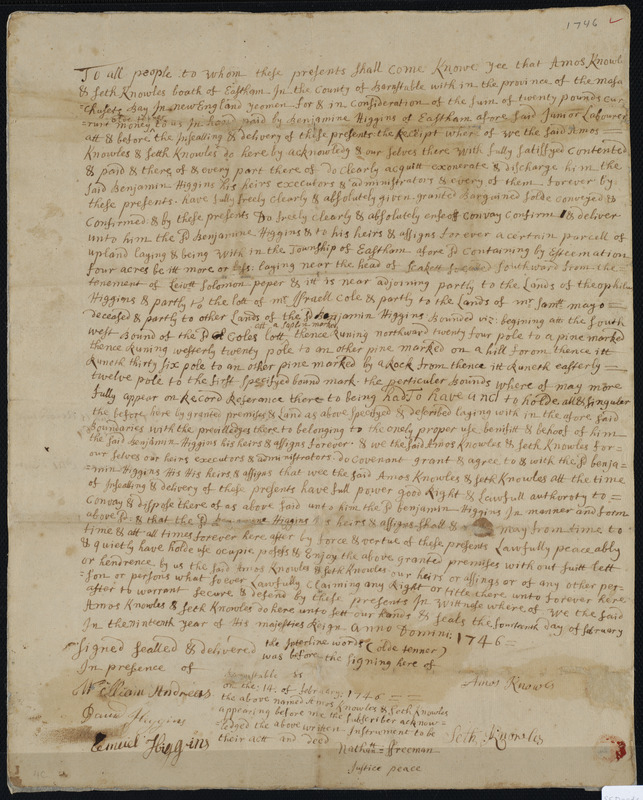 1746
To all people to whom these presents shall Come Knowe yee that Amos Knowl
& Seth Knowles boath of Eastham In the County of Barnstable with in the province of the masa
=chusets Bay In new England yeomen for & in Consideration of the Sum of twenty pounds cur
=rant money olde tenner to us In hand paid by Benjamine Higgins of Eastham afore Said Junior Labourer
att & before the Insealling & delivery of these presents the Receipt where of we the said Amos
Knowles & Seth Knowles do here by acknowledg & our selves there with fully Sattisfyed Contented
& paid & there of & every part there of Do Clearly acquitt exonerate & discharge him the
Said Benjamin Higgins his heirs executors & administrators & every of them Forever by
these presents have fully freely Clearly & absolutely given granted Bargained Solde Conveyed &
Confirmed & by these presents Do freely Clearly & absolutely Convay Confirm & deliver
unto him the Sd Benjamine Higgins & to his heirs & assigns forever a certain parcell of
upland laying & being with in the Township of Eastham afore Sd Containing by Esteemation
four acres be itt more or less laying near the head of Southward from the
tenement of Leiutt Solomon peper & itt is near adjoining partly to the Lands of theophil
Higgins & partly to the lott of mr Israell Cole & partly to the Lands of mr Samll mayo =
deceased & partly to other Lands of the Sd Benjamin Higgins Bounded viz: begining att the South
west Bound of the Sd Coles lott thence Runing northward twenty four pole to a pine marked
thence Runing westerly twenty pole to an other pine marked on a hill from thence itt
Runeth thirty six pole to an other pine marked by a Rock from thence itt Runeth easterly
twelve pole to the first Spesifyed bound mark the perticular Bounds where of may more
fully appear on Record Referance there to being had To have and to holde all & Singular
the before here by granted premises & Land as above Specifyed & described laying with in the afore Said
Boundaries with the previlledges there to belonging to the onely proper use benifitt & behoof of him
the Said Benjamin Higgins his heirs & assigns Forever & we the Said Amos Knowles & Seth Knowles for
our Selves our heirs executors & administrators do Covenant grant & agree to & with the Sd Benja=
=min Higgins His heirs & assigns that wee the Said Amos Knowles & Seth Knowles att the time
of Insealling & delivery of these presents have full power good Right & Lawfull authoroty to =
Convay & dispose there of as above Said unto him the Sd Benjamin Higgins In manner and form
above Sd & that the Sd Benjamine Higgins his heirs & assigns Shall & may from time to
time & att all times forever here after by force & vertue of these presents Lawfully peaceably
& quietly have holde use ocupie posess & Enjoy the above granted premises with out Suitt lett
or hendrence by us the Said Amos Knowles & Seth Knowles our heirs or assings or of any other per=
son or persons what soever Lawfully Claiming any Right or title there unto forever here
after to warrant Secure & defend by these presents In Wittness where of we the Said
Amos Knowles & Seth Knowles do here unto Sett our hands & Seals the fourteenth day of february
In the ninteenth year of His majesties Reign Anno Domini: 1746 =
Signed Sealled & delivered
In presence of
the Interline words (olde tenner)
was before the Signing here of
William Andrews
David Higgins
Lemuel Higgins
Barnstable ss
on the: 14. of february: 1746
the above named Amos Knowles & Seth Knowles
appearing before me the Subscriber acknow=
ledged the above written Instrument to be
their act and deed
Nathatt= Freeman
Justice peace
Amos Knowles
Seth Knowles